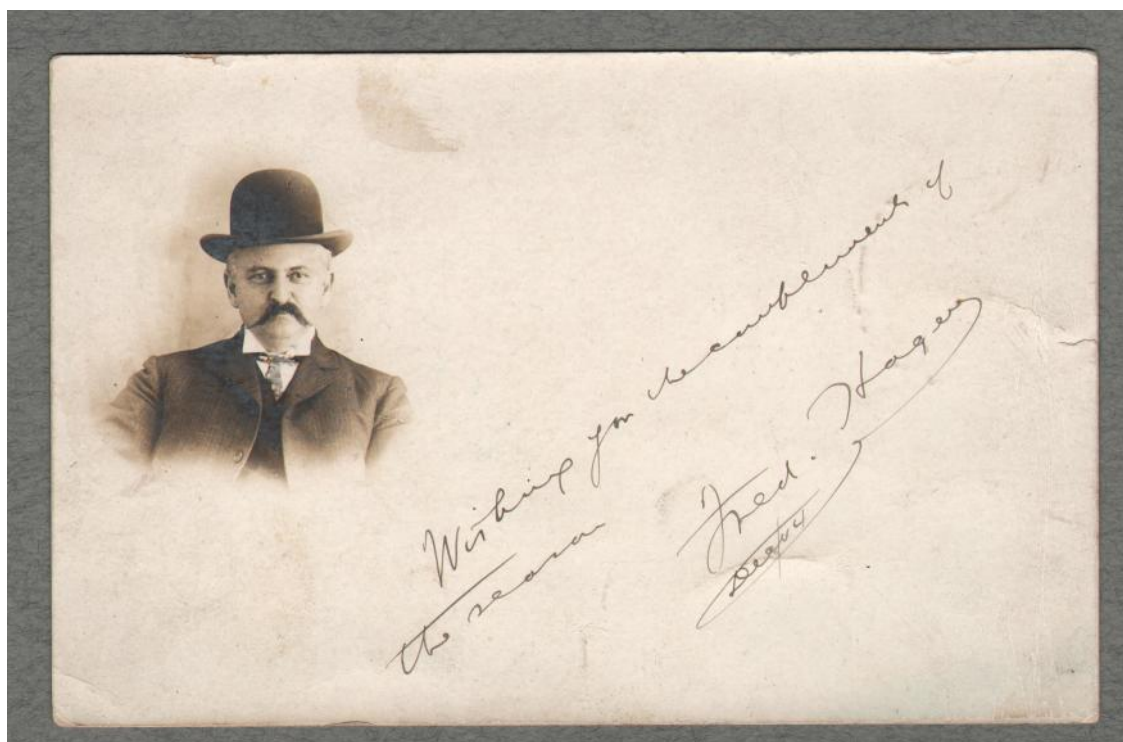 Wishing you the compliments of
the season
Fred. Hagen